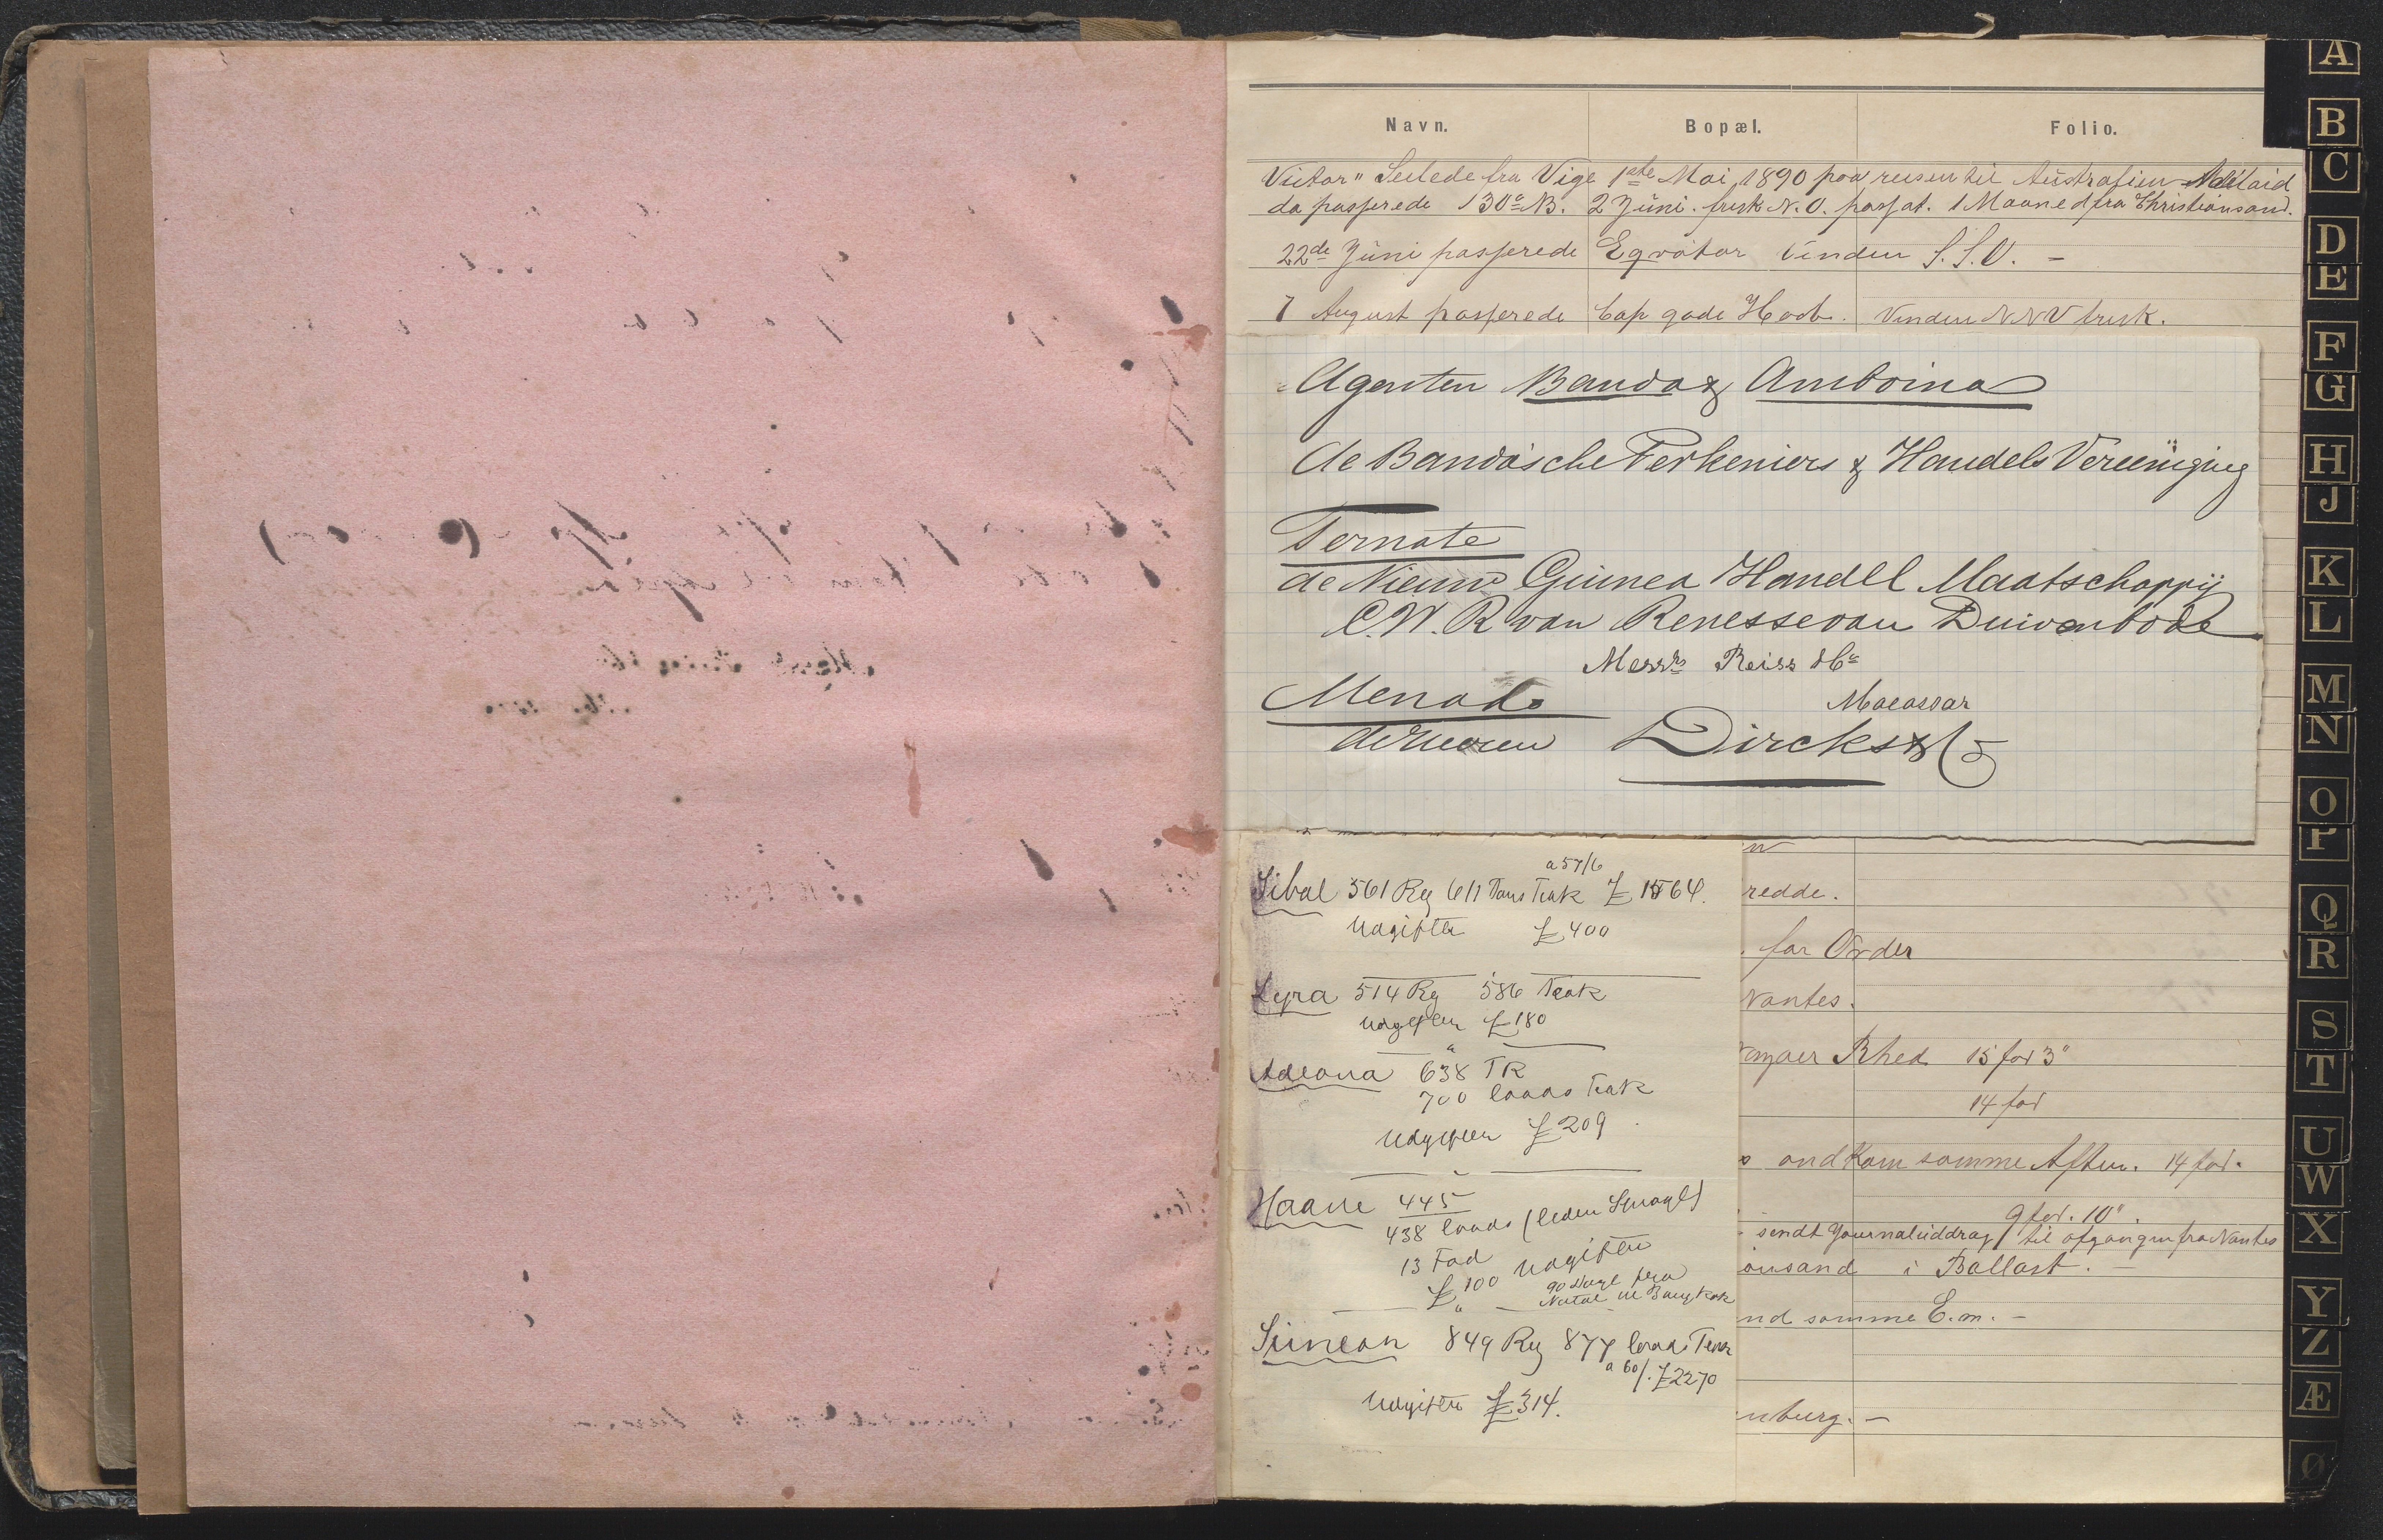 Navn. Bopæl. Folio.
Victor" Seilede fra Vige 1ste Mai 1890 paa reisen til Australien Adelaid
da passerede 30° N. 2 Juni. frisk N.O. passat. 1 Maaned fra Christiansand.
22de Juni passerede Eqvator Vinden S.S.O. —
7 August passerede Cap gode Haab. Vinden NNV frisk.
Agenten Banda & Amboina
de Bandasche Perkeniers & Handels Vereeniging
Ternate
de Nieuw Guinea Handel Maatschappij
C.W.R van Renesse van Duivenbode
Messrs Reiss & Co
Macassar
Menado
de Heeren Dircks & Co
a 57/6
Sibal 561 Reg 611 Tons Teak £ 1564.
Udgifter £ 400
Lyra 514 Reg 586 Teak
Udgifter £ 180
Adeona 638 TR
700 loads Teak
Udgifter £ 209
Haabe 445
438 loads
13 Fod
£ 100 Udgifter
90 Dage fra
Natal til Bangkok
Simeon 849 Reg 877 loads Teak
a 60/. £2270
Udgifter £ 314.
redde.
. for Order
Nantes.
Rhed 15 fod 3"
14 fod
ankom samme Aften. 14 fod.
9 fod. 10".
sendt Journaluddrag til afgangen fra Nantes
ansand i Ballast. —
nd samme E.m. —
nburg. —
A
B
C
D
E
F
G
H
J
K
L
M
N
O
P
Q
R
S
T
U
W
X
Y
Z
Æ
Ø